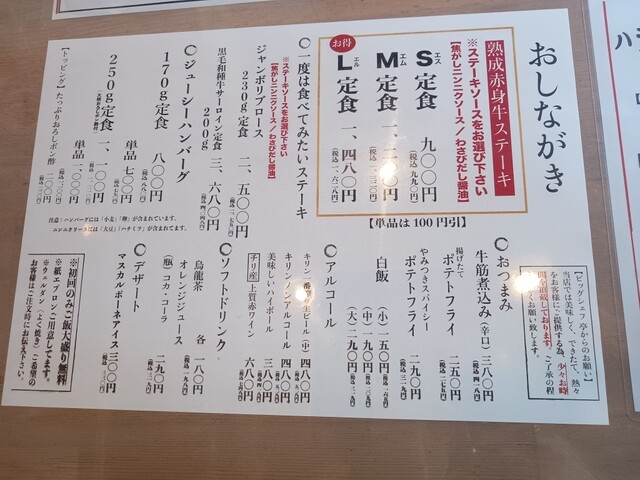 おしながき
熟成赤身牛ステーキ
※ステーキソースをお選び下さい
【焦がしニンニクソース／わさびだし醤油】
エス
S定食 九〇〇円
(税込 九九〇円)
エム
M定食 一、二〇〇円
(税込 一、三二〇円)
お得
エル
L定食 一、四八〇円
(税込 一、六二八円)
【単品は100円引】
〇一度は食べてみたいステーキ
※ステーキソースをお選び下さい
【焦がしニンニクソース／わさびだし醤油】
ジャンボリブロース
230g定食 二、五〇〇円
(税込 二、七五〇円)
黒毛和種牛サーロイン定食
200g 三、六八〇円
(税込 四、〇四八円)
〇ジューシーハンバーグ
170g定食 八〇〇円
(税込 八八〇円)
単品 七〇〇円
250g定食 一、一〇〇円
単品 一、〇〇〇円
【トッピング】たっぷりおろしポン酢 二〇〇円
注意：ハンバーグには「小麦」「卵」が含まれています。
ニンニクソースには「大豆」「ハチミツ」が含まれています。
【ビッグシェフ亭からのお願い】
当店では美味しく、できたて、熱々
をお客様にご提供する為、少々お時
間を頂戴しております。ご了承の程
よろしくお願い致します。
〇おつまみ
牛筋煮込み(辛口) 三八〇円
(税込 四一八円)
揚げたて
ポテトフライ 二五〇円
(税込 二七五円)
やみつきスパイシー
ポテトフライ 二九〇円
(税込 三一九円)
白飯 (小) 一五〇円
(税込 一六五円)
(中) 一九〇円
(税込 二〇九円)
(大) 二九〇円
(税込 三一九円)
〇アルコール
キリン一番搾り生ビール(中) 四八〇円
キリンノンアルコール 四八〇円
美味しいハイボール 三八〇円
チリ産 上質赤ワイン 六八〇円
〇ソフトドリンク
烏龍茶 各 一八〇円
オレンジジュース (税込 一九八円)
(瓶)コカ・コーラ 二九〇円
(税込 三一九円)
〇デザート
マスカルポーネアイス 三〇〇円
(税込 三三〇円)
※初回のみご飯大盛り無料
※紙エプロンご用意してます。
※ウェルダン(よく焼き)ご希望の
お客様はご注文時にお伝え下さい。